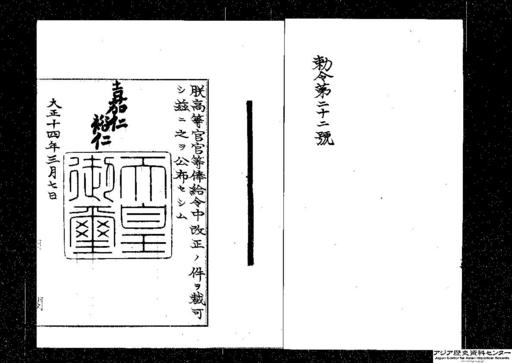 勅令第二十二號
朕高等官官等俸給令中改正ノ件ヲ裁可
シ茲ニ之ヲ公布セシム
嘉仁
裕仁
天皇
御璽
大正十四年三月七日
アジア歴史資料センター
Japan Center for Asian Historical Records